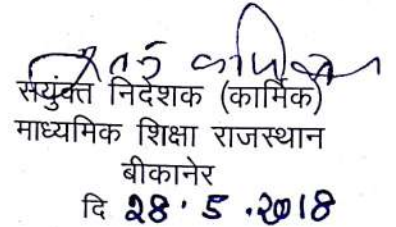 सयुंक्त निदेशक (कार्मिक)
माध्यमिक शिक्षा राजस्थान
बीकानेर
दि 28.5.2018